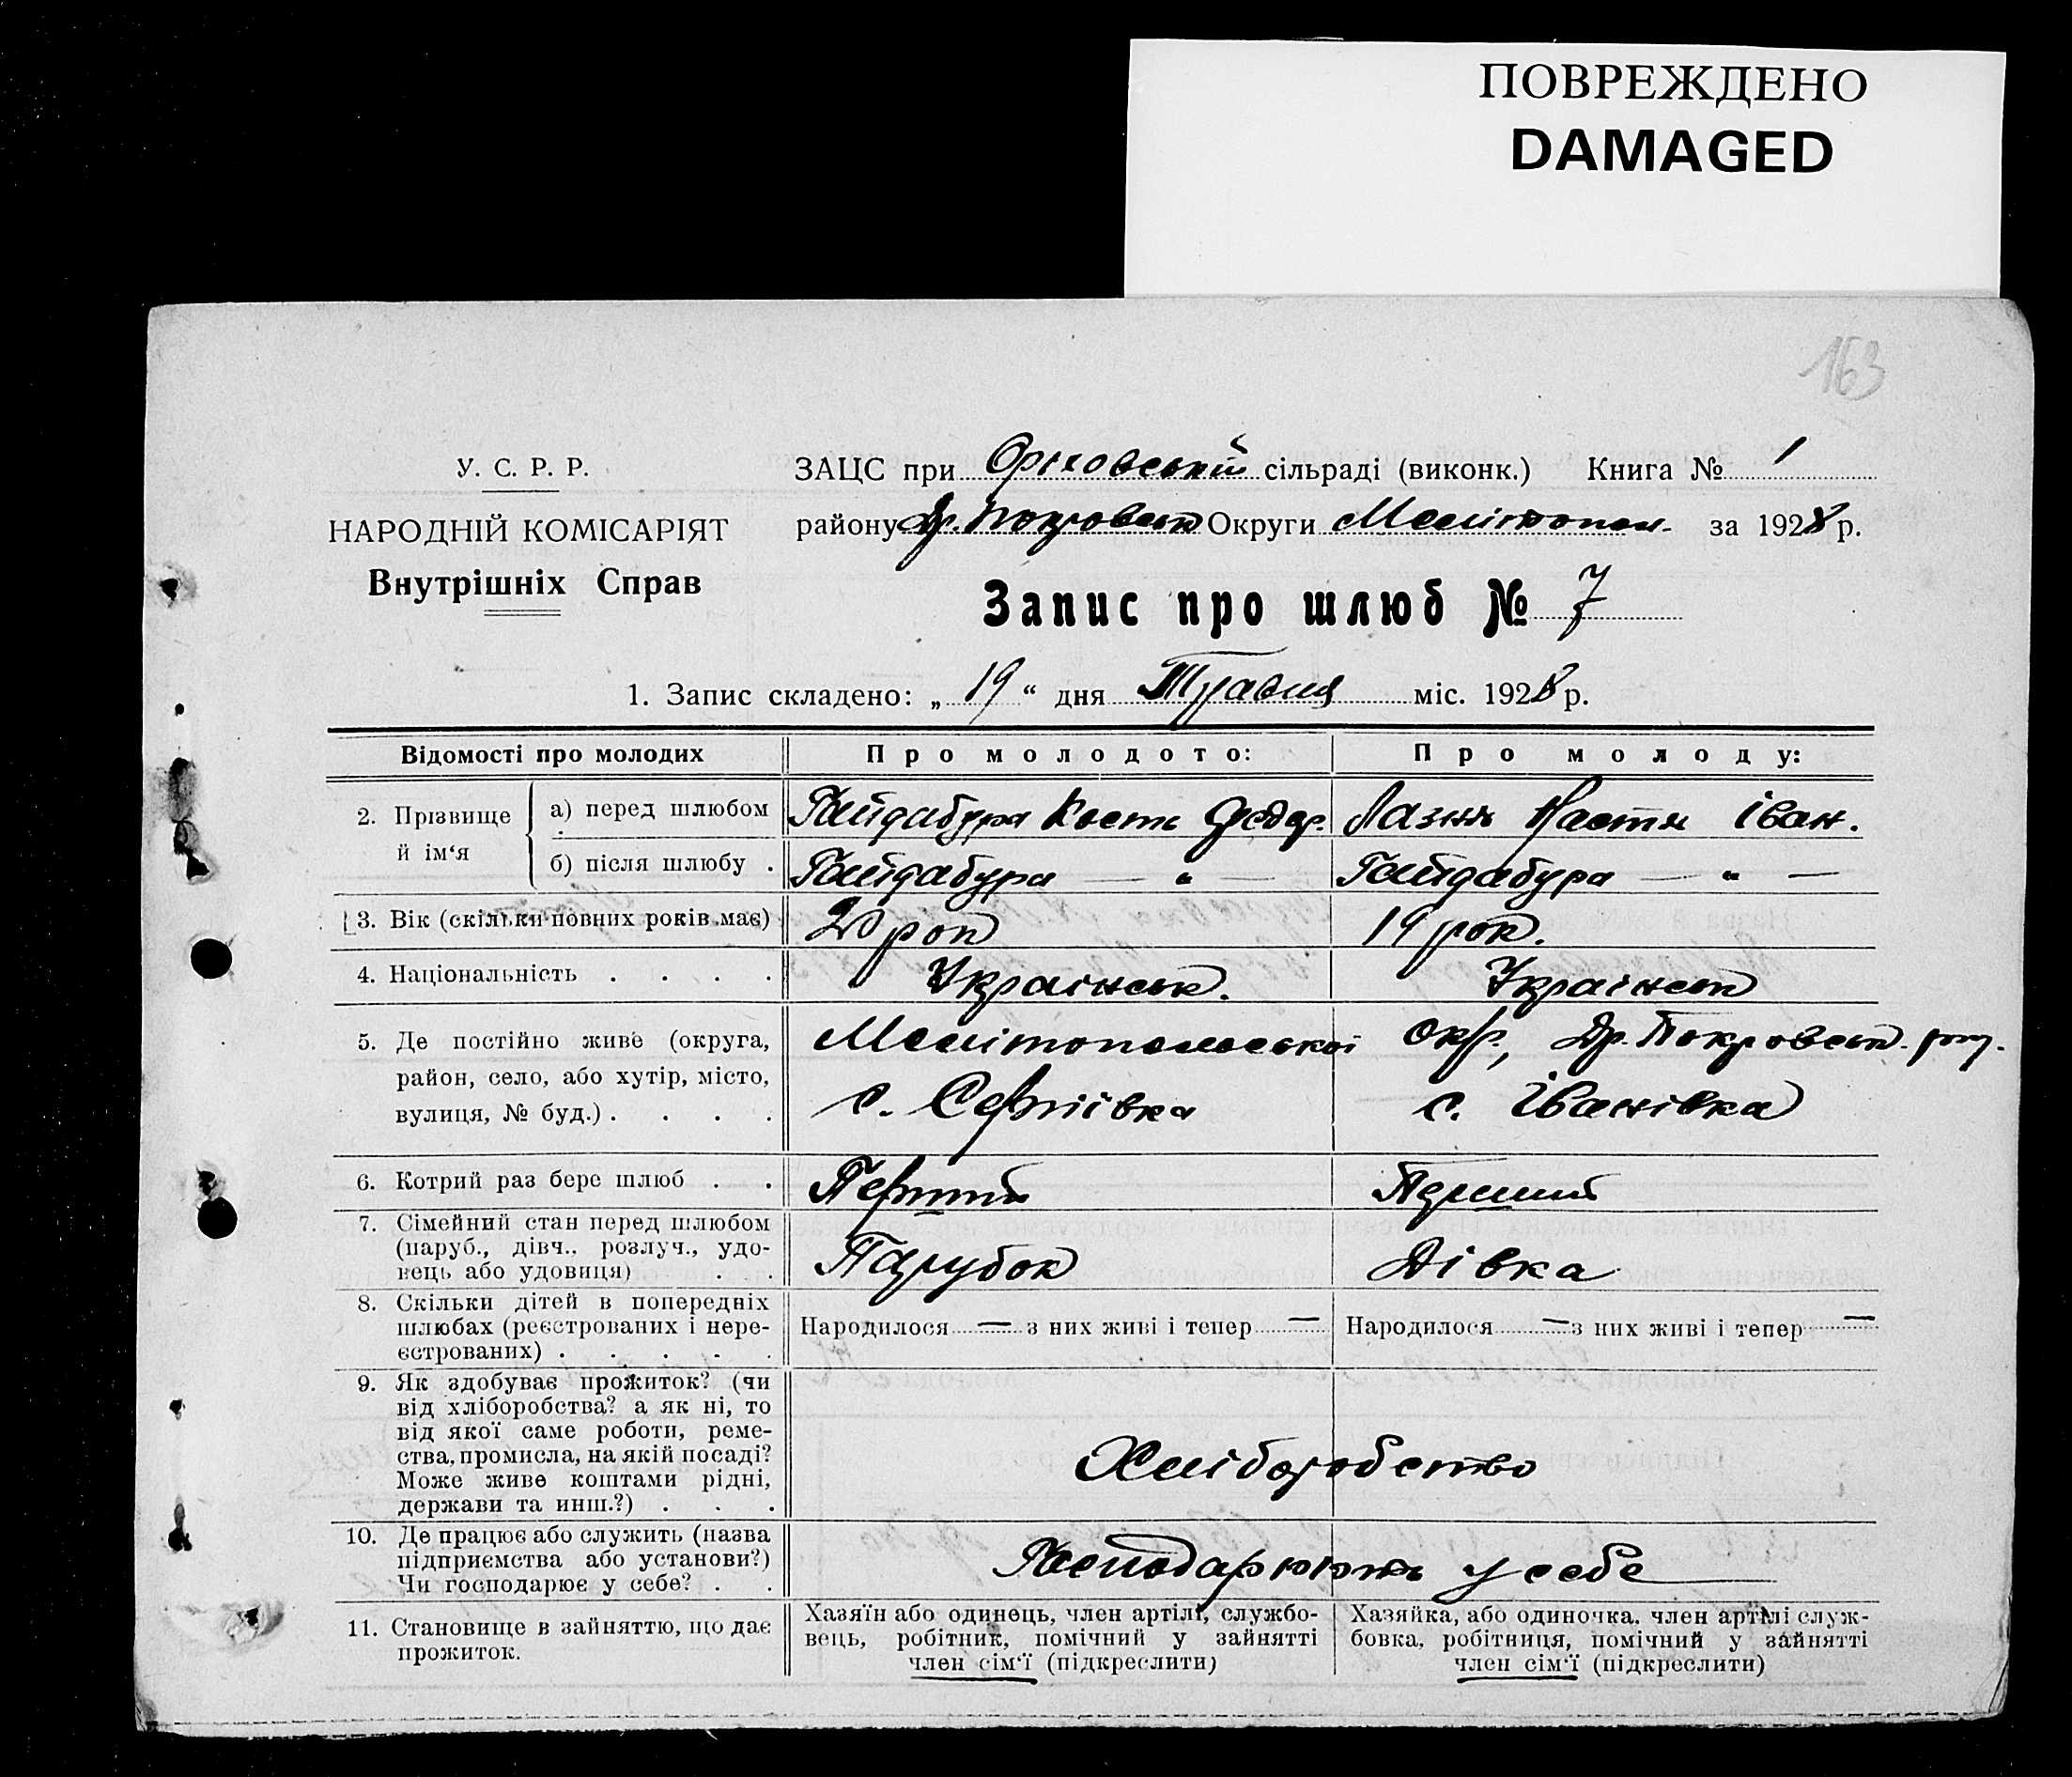 ПОВРЕЖДЕНО
DAMAGED
163
У. С. Р. Р.
НАРОДНІЙ КОМІСАРІЯТ
Внутрішніх Справ
ЗАЦС при Оріховській сільраді (виконк.) Книга № 1
району Др. Покровськ Округи Мелітопол. за 1928 р.
Запис про шлюб № 7
1. Запис складено: „ 19 “ дня Травня міс. 1928 р.
Відомості про молодих Про молодого: Про молоду:
2. Прізвище й ім‘я
а) перед шлюбом Гайдабура Кость Федор. Лазня Настя Іван.
б) після шлюбу . Гайдабура — „ — Гайдабура — „ —
3. Вік (скільки повних років має) 20 рок 19 рок.
4. Національність . . . . Українськ. Українськ
5. Де постійно живе (округа, Мелітопольської окр., Др. Покровськ. рай.
район, село, або хутір, місто, с. Сергіівка с. Іванівка
вулиця, № буд.) . . . .
6. Котрий раз бере шлюб . . Перший Перший
7. Сімейний стан перед шлюбом
(паруб., дівч., розлуч., удо- Парубок Дівка
вець або удовиця) . .
8. Скільки дітей в попередніх
шлюбах (реєстрованих і нере- Народилося — з них живі і тепер — Народилося — з них живі і тепер —
єстрованих) . . . . .
9. Як здобуває прожиток? (чи
від хліборобства? а як ні, то
від якої саме роботи, реме-
ства, промисла, на якій посаді? Хліборобство
Може живе коштами рідні,
держави та инш.?) . . .
10. Де працює або служить (назва
підприємства або установи?) Господарюють у себе
Чи господарює у себе? . .
11. Становище в зайняттю, що дає
прожиток.
Хазяїн або одинець, член артілі, службо-
вець, робітник, помічний у зайнятті
член сім‘ї (підкреслити)
Хазяйка, або одиночка, член артілі служ-
бовка, робітниця, помічний у зайнятті
член сім‘ї (підкреслити)